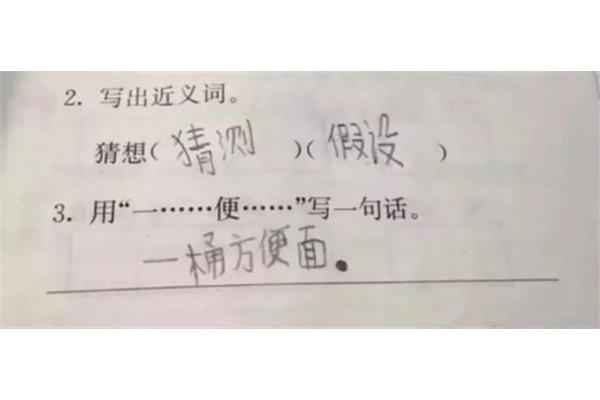 2. 写出近义词。
猜想( 猜测 )( 假设 )
3. 用“一……便……”写一句话。
一桶方便面.